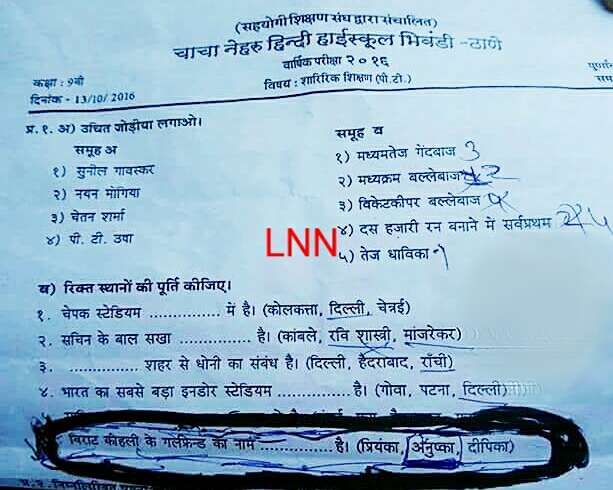 (सहयोगी शिक्षण संघ द्वारा संचालित)
चाचा नेहरु हिन्दी हाईस्कूल भिवंडी -ठाणे
वार्षिक परीक्षा २०१६
कक्षा : 9वी
विषय : शारिरिक शिक्षण (पी.टी.)
दिनांक - 13/10/ 2016
प्र.१. अ) उचित जोड़ीया लगाओ।
समूह अ समूह ब
१) सुनील गावस्कर १) मध्यमतेज गेंदबाज 3
२) नयन मोंगिया २) मध्यक्रम बल्लेबाज 2
३) चेतन शर्मा ३) विकेटकीपर बल्लेबाज
४) पी. टी. उषा ४) दस हजारी रन बनाने में सर्वप्रथम
LNN
५) तेज धाविका
ब) रिक्त स्थानों की पूर्ति कीजिए।
१. चेपक स्टेडियम ............... में है। (कोलकत्ता, दिल्ली, चेन्नई)
२. सचिन के बाल सखा ............... है। (कांबले, रवि शास्त्री, मांजरेकर)
३. ............... शहर से धोनी का संबंध है। (दिल्ली, हैदराबाद, राँची)
४. भारत का सबसे बड़ा इनडोर स्टेडियम ............... है। (गोवा, पटना, दिल्ली)
विराट कोहली के गर्लफ्रेन्ड का नाम ............... है। (प्रियंका, अनुष्का, दीपिका)
प्र.२. निम्नलिखित